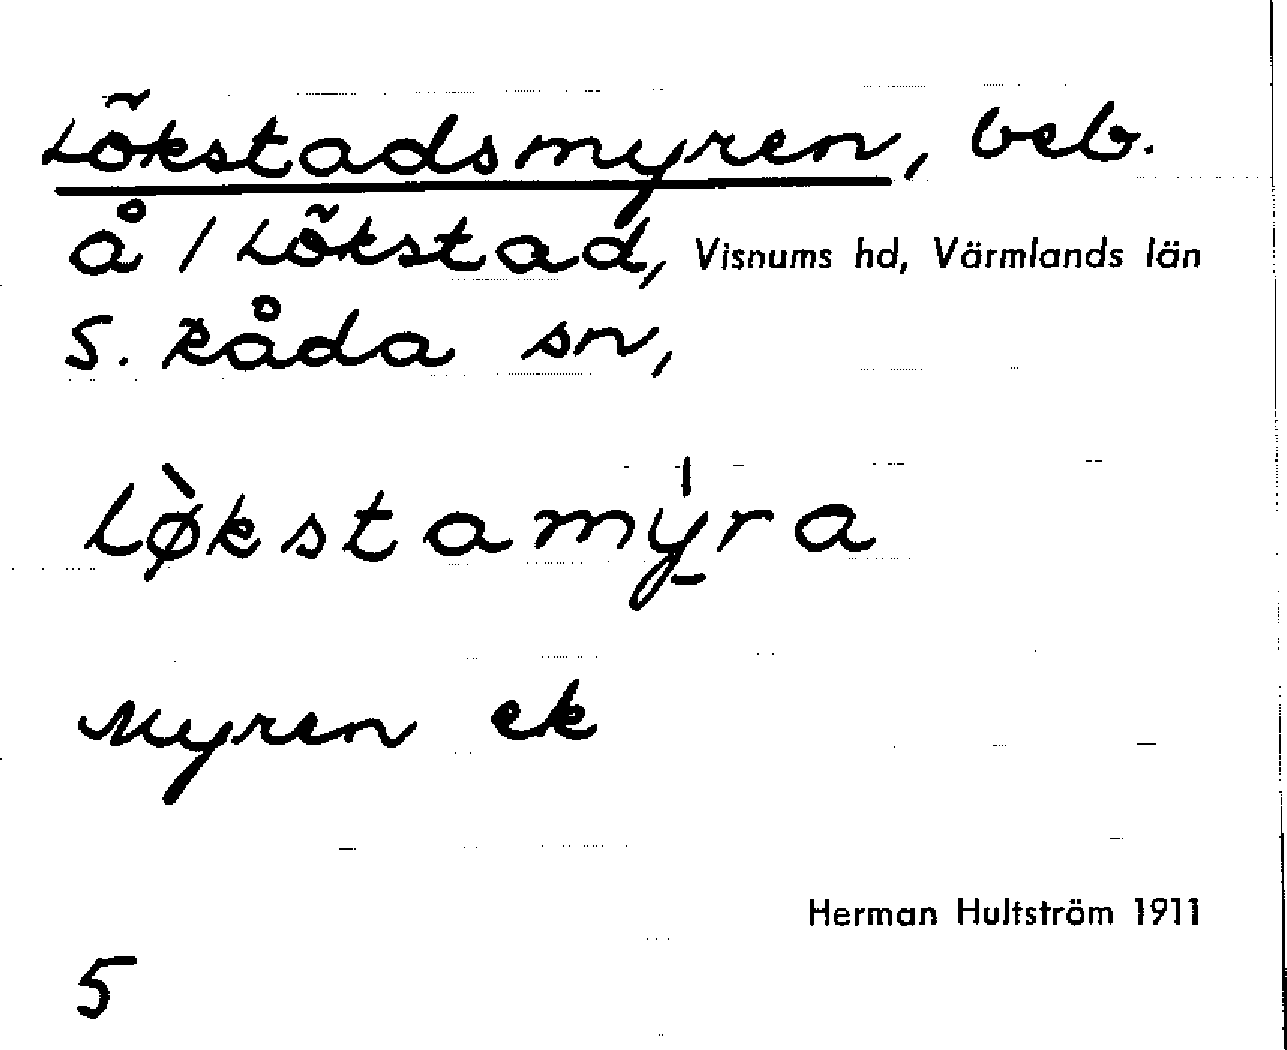 Lökstadsmyren, beb.
å / Lökstad, Visnums hd, Värmlands län
S. Råda sn,
Lø̀kstamy̱̍ra
Myren ek
Herman Hultström 1911
5